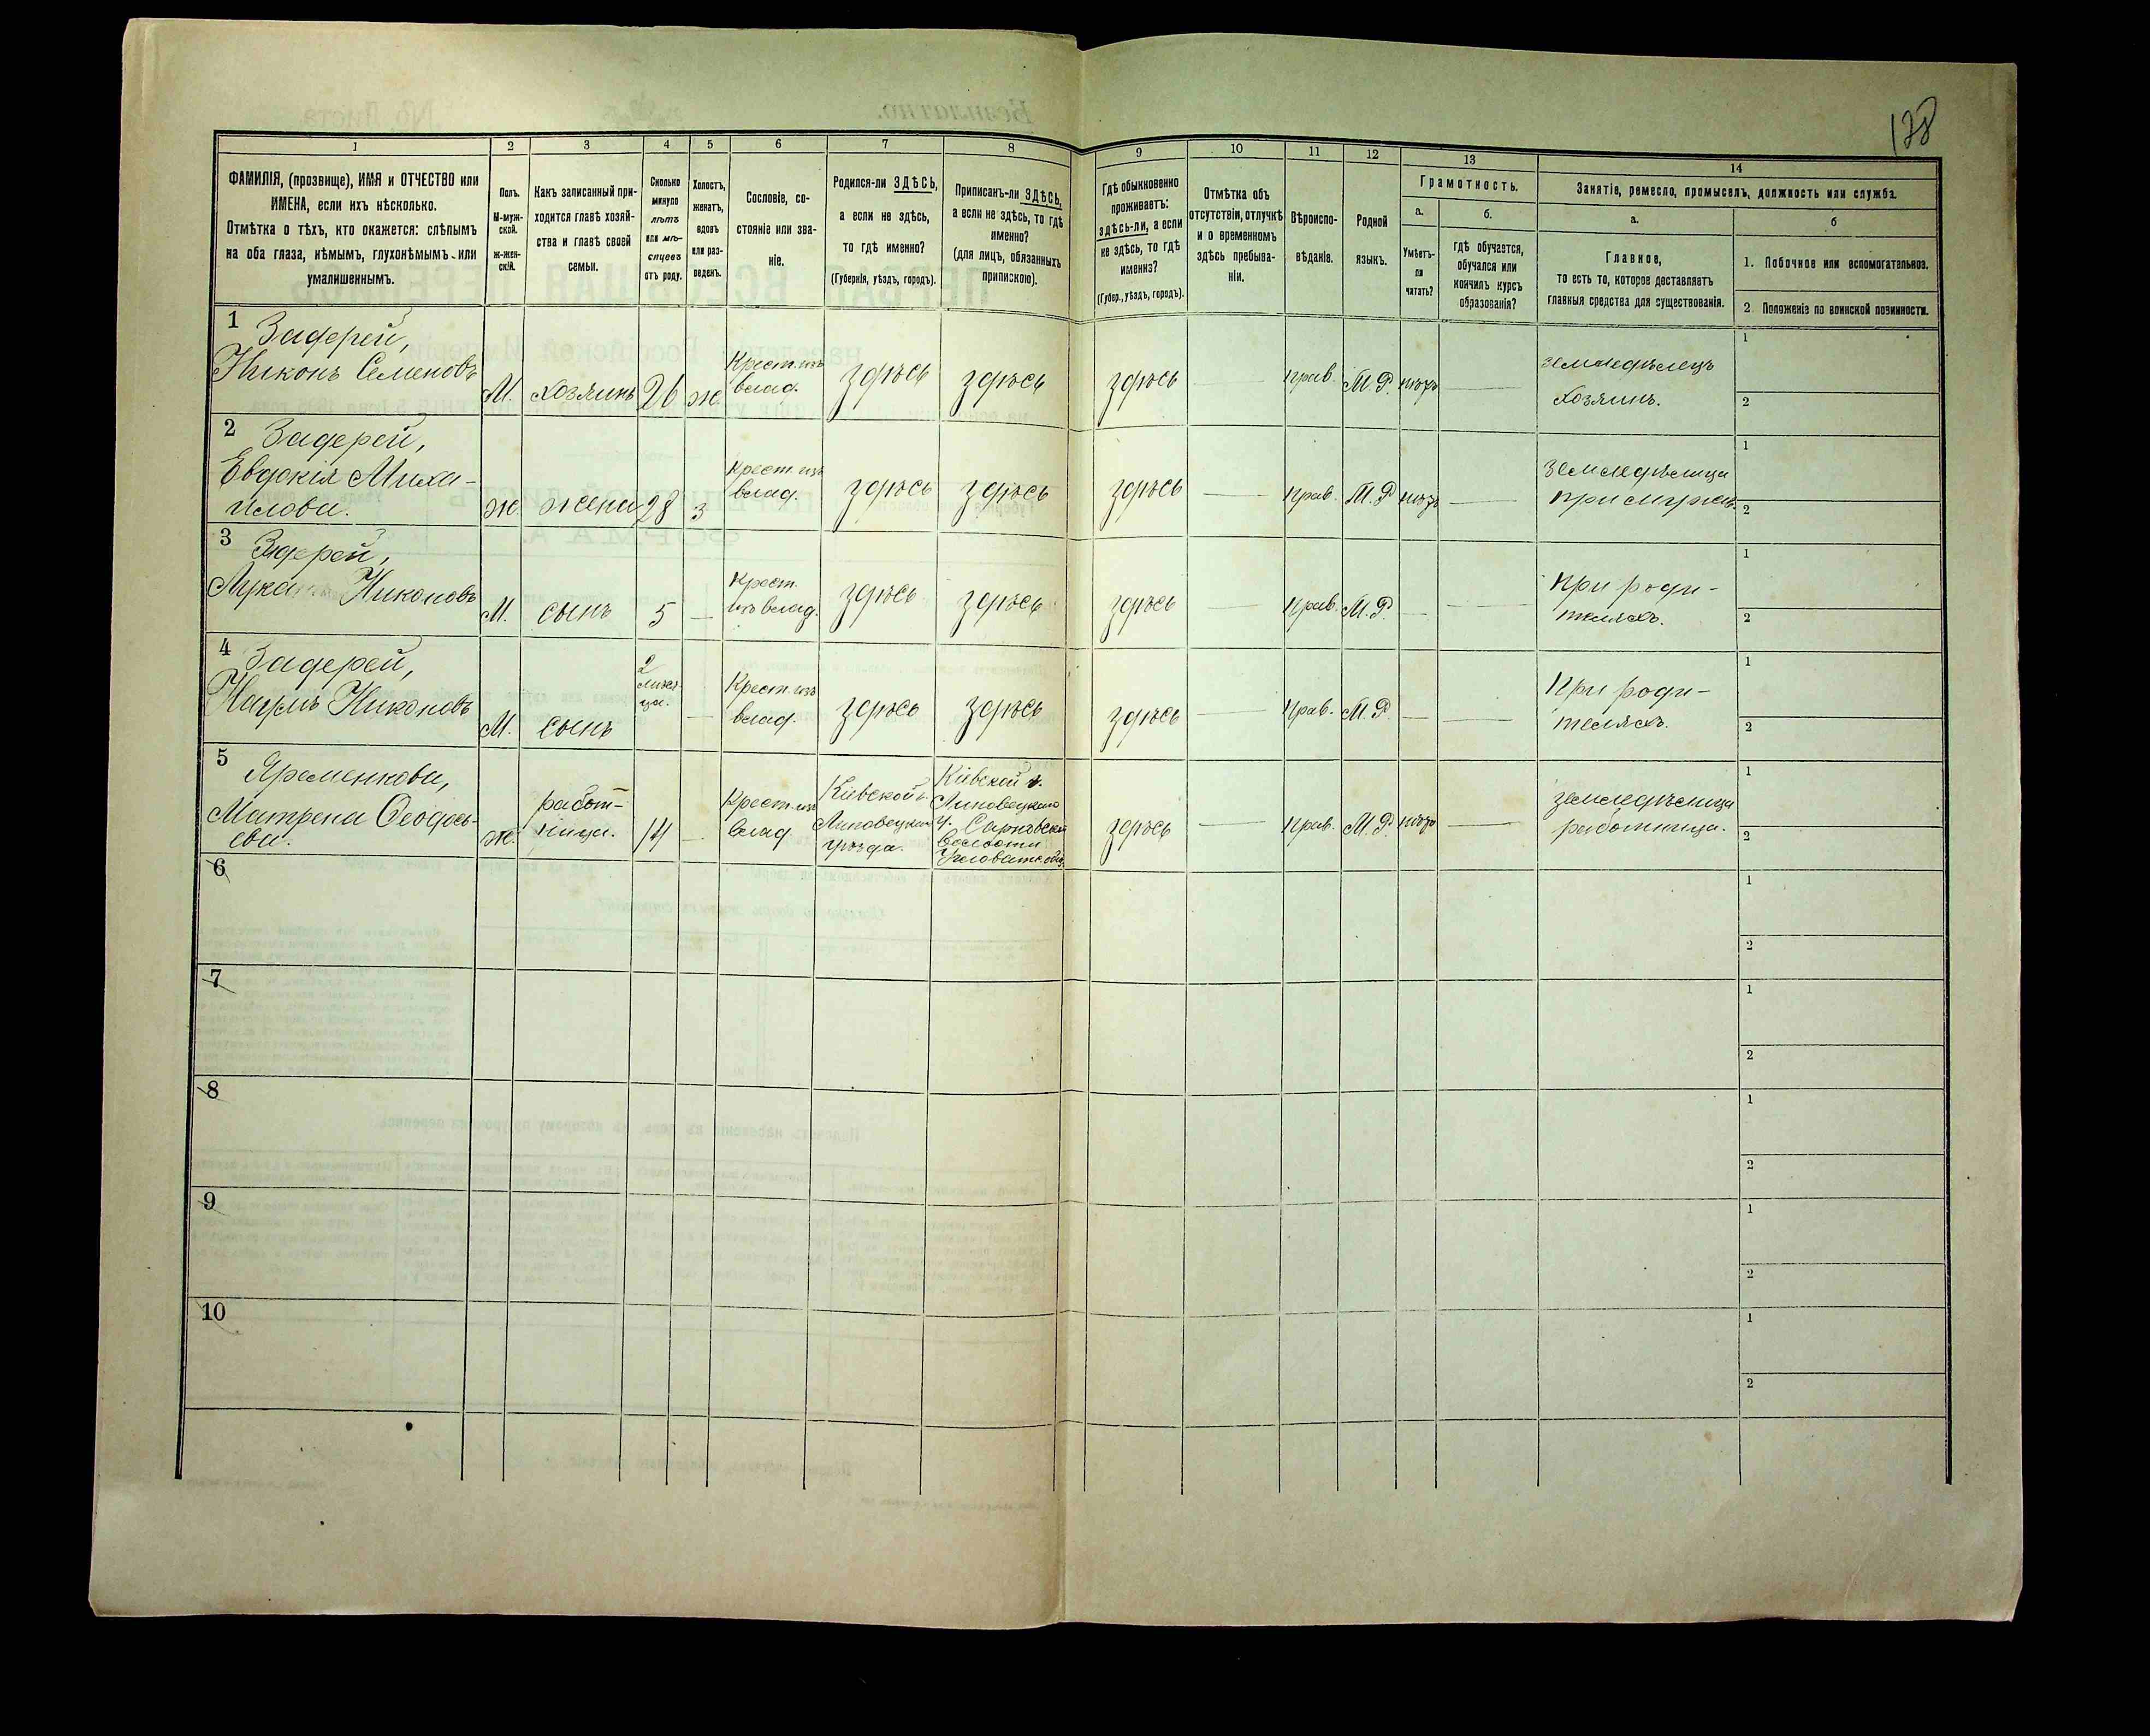 138
1 2 3 4 5 6 7 8 9 10 11 12 13 14
ФАМИЛІЯ, (прозвище), ИМЯ и ОТЧЕСТВО или
ИМЕНА, если ихъ нѣсколько.
Отмѣтка о тѣхъ, кто окажется: слѣпымъ
на оба глаза, нѣмымъ, глухонѣмымъ или
умалишеннымъ.
Полъ.
М-муж-
ской.
ж-жен-
скій.
Какъ записанный при-
ходится главѣ хозяй-
ства и главѣ своей
семьи.
Сколько
минуло
лѣтъ
или мѣ-
сяцевъ
отъ роду.
Холостъ,
женатъ,
вдовъ
или раз-
веденъ.
Сословіе, со-
стояніе или зва-
ніе.
Родился-ли ЗДѢСЬ,
а если не здѣсь,
то гдѣ именно?
(Губернія, уѣздъ, городъ).
Приписанъ-ли ЗДѢСЬ,
а если не здѣсь, то гдѣ
именно?
(для лицъ, обязанныхъ
припискою).
Гдѣ обыкновенно
проживаетъ:
здѣсь-ли, а если
не здѣсь, то гдѣ
именно?
(Губер., уѣздъ, городъ).
Отмѣтка объ
отсутствіи, отлучкѣ
и о временномъ
здѣсь пребыва-
ніи.
Вѣроиспо-
вѣданіе.
Родной
языкъ.
Грамотность.
а.
Умѣетъ-
ли
читать?
б.
гдѣ обучается,
обучался или
кончилъ курсъ
образованія?
Занятіе, ремесло, промыселъ, должность или служба.
а.
Главное,
то есть то, которое доставляетъ
главныя средства для существованія.
б
1. Побочное или вспомогательное.
2. Положеніе по воинской повинности.
1 Задерей,
Никонъ Семеновъ
М. хозяинъ 26 ж.
Крест. изъ
влад.
здѣсь здѣсь здѣсь прав. М.Р. нѣтъ —
земледѣлецъ
хозяинъ.
1
2
2 Задерей,
Евдокія Миха-
илова.
ж. жена 28 з
Крест. изъ
влад.
здѣсь здѣсь здѣсь — прав. М.Р. нѣтъ —
земледѣлица
при мужѣ.
1
2
3 Задерей,
Лука Никоновъ
М. сынъ 5 —
Крест.
изъ влад.
здѣсь здѣсь здѣсь — прав. М.Р. — —
при роди-
теляхъ.
1
2
4 Задерей,
Наумъ Никоновъ
М. сынъ
2
мѣся-
ца.
—
Крест. изъ
влад.
здѣсь здѣсь здѣсь — прав. М.Р. — —
при роди-
теляхъ.
1
2
5 Яременкова,
Матрена Ѳеодось-
ева.
ж.
работ-
ница.
14 —
Крест. изъ
влад.
Кіевской г.
Липовецкаго
уѣзда.
Кіевской г.
Липовецкаго
у.
волости
здѣсь — прав. М.Р. нѣтъ —
земледѣлица
работница.
1
2
6
1
2
7
1
2
8
1
2
9
1
2
10
1
2